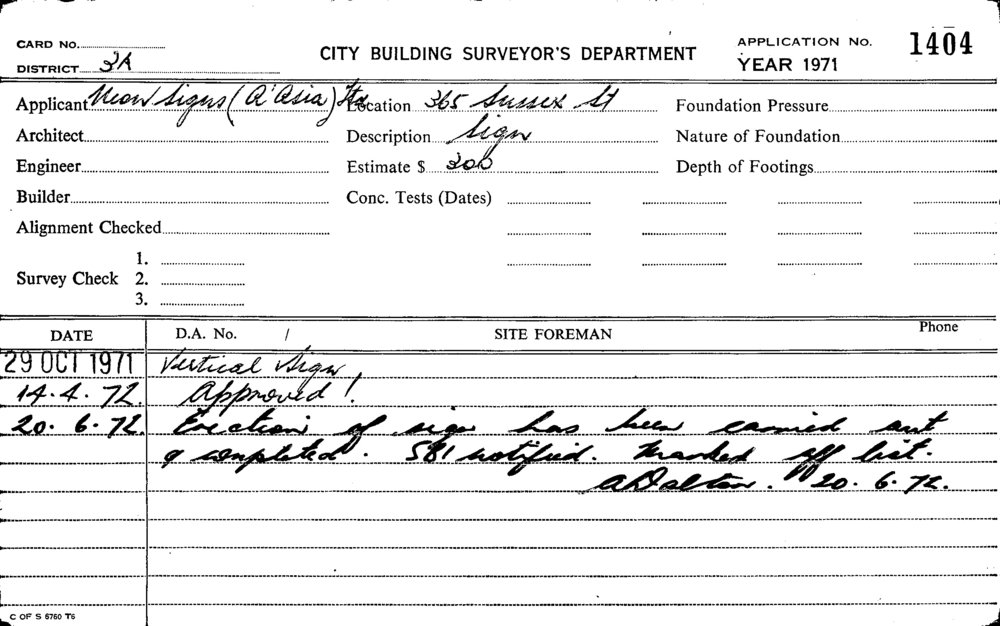 CARD NO.
DISTRICT 3A
CITY BUILDING SURVEYOR'S DEPARTMENT
APPLICATION No. 1404
YEAR 1971
Applicant Neon Signs (A'Asia) Location 365 Sussex St Foundation Pressure
Architect Description Sign Nature of Foundation
Engineer Estimate $ 300 Depth of Footings
Builder Conc. Tests (Dates)
Alignment Checked
1.
Survey Check 2.
3.
DATE D.A. No. / SITE FOREMAN Phone
29 OCT 1971 Vertical Sign
14.4.72. Approved!
20.6.72. Erection of sign has been carried out
& completed. S81 notified. Marked off list.
A Dalton. 20.6.72.
C OF S 6760 T6